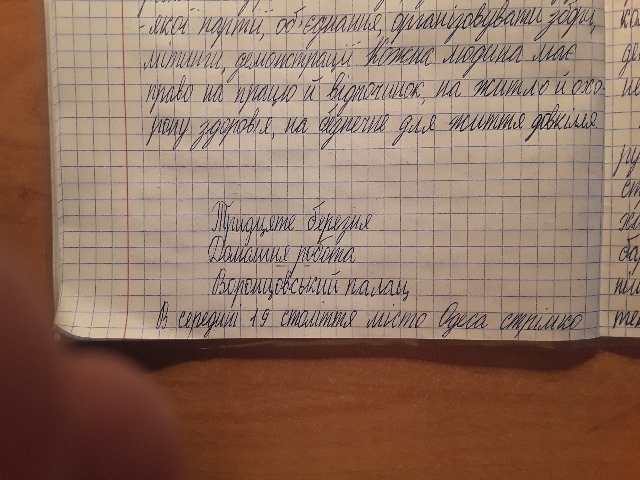 -якої партії, об'єднання, організовувати з'їзди,
мітинги, демонстрації. Кожна людина має
право на працю й відпочинок, на житло й охо-
рону здоров'я, на безпечне для життя довкілля.
Тридцяте березня
Домашня робота
Воронцовський палац
В середині 19 століття місто Одеса стрімко